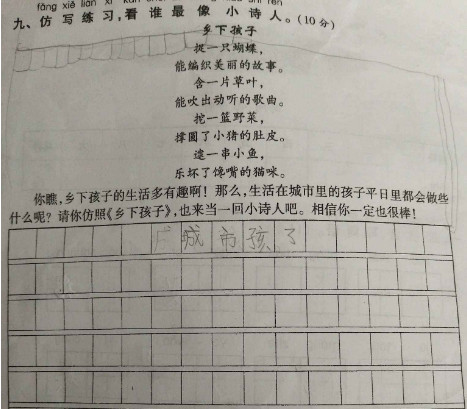 fǎng xiě liàn xí kàn shuí zuì xiàng xiǎo shī rén
九、仿写练习,看谁最像小诗人。(10分)
乡下孩子
捉一只蝴蝶,
能编织美丽的故事。
含一片草叶,
能吹出动听的歌曲。
挖一篮野菜,
撑圆了小猪的肚皮。
逮一串小鱼,
乐坏了馋嘴的猫咪。
你瞧,乡下孩子的生活多有趣啊!那么,生活在城市里的孩子平日里都会做些
什么呢?请你仿照《乡下孩子》,也来当一回小诗人吧。相信你一定也很棒!
城市孩子